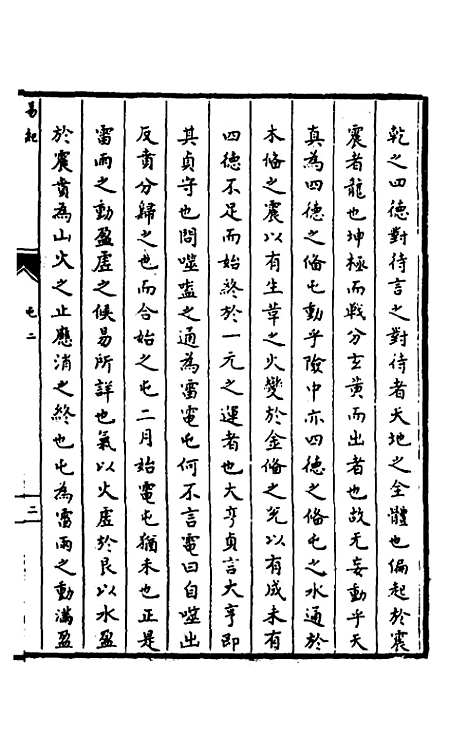 乾之四德對待言之對待者天地之全體也偏起於震
震者龍也坤極而戰分玄黃而出者也故无妄動乎天
真為四德之俻屯動乎險中亦四德之俻屯之水通於
木俻之震以有生革之火變於金俻之兊以有成未有
四德不足而始終於一元之運者也大亨貞言大亨即
其貞守也問噬盍之通為雷電屯何不言電曰自噬出
反賁分歸之也而合始之屯二月始電屯猶未也正是
雷雨之動盈虛之候易所詳也氣以火虛於艮以水盈
於震賁為山火之止應消之終也屯為雷雨之動滿盈
易紀
屯二
二